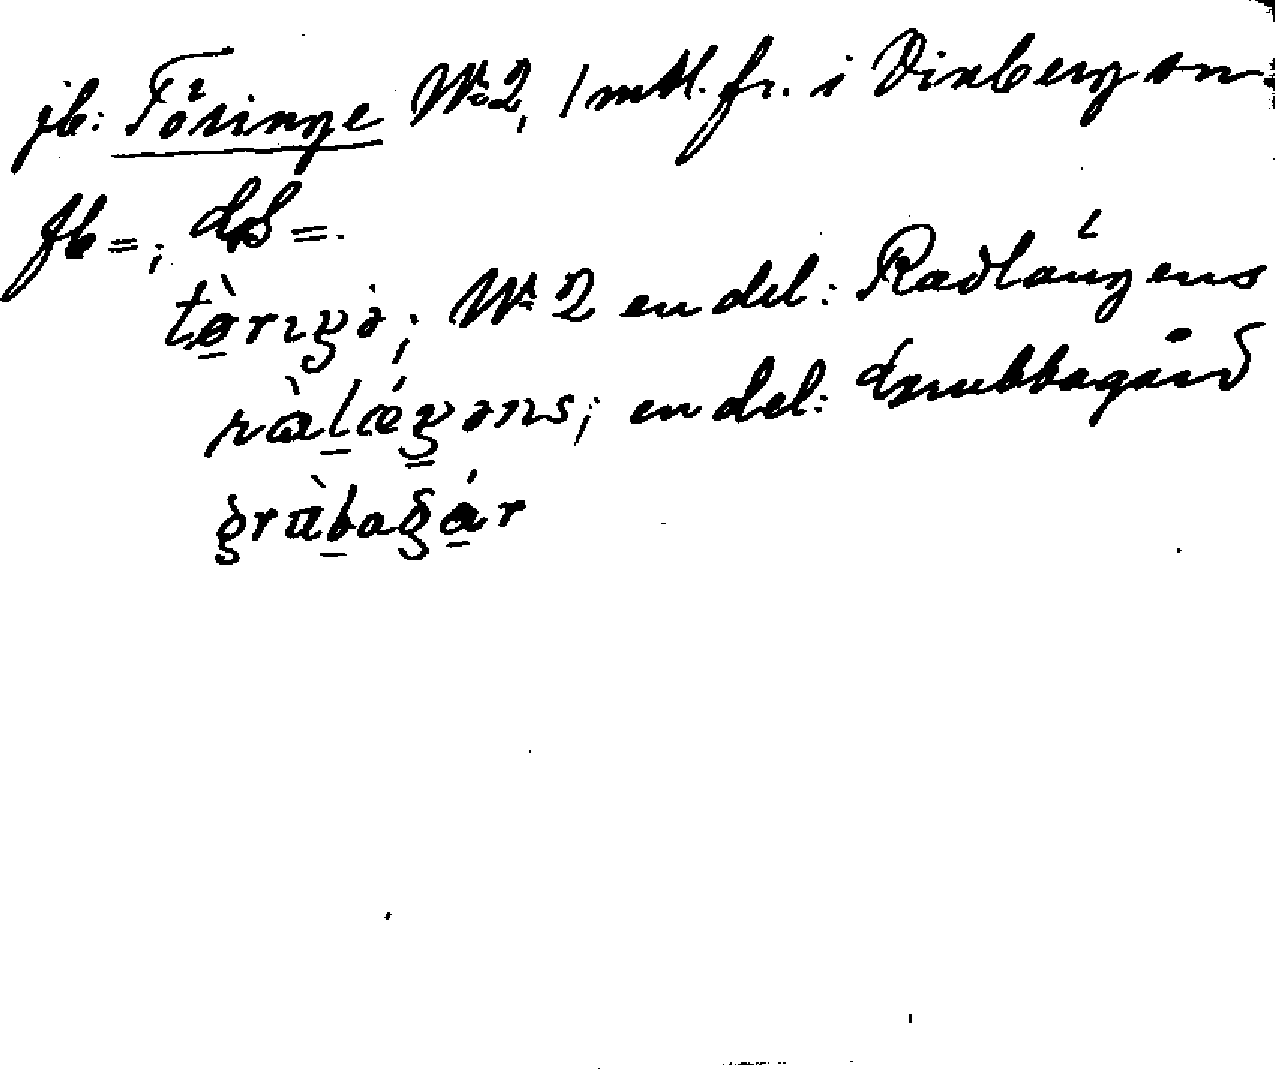 jb: Töringe No 2, 1 mtl. fr. i Vinberg sn
fb =; ds =.
tø̀riŋə; No 2 en del: Radlängens
ràlǽŋəns; en del: Grubbagård
grùbagár